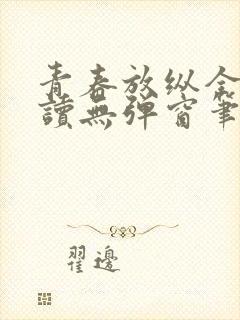 青春放纵全
讀無弹窗筆
翟邊